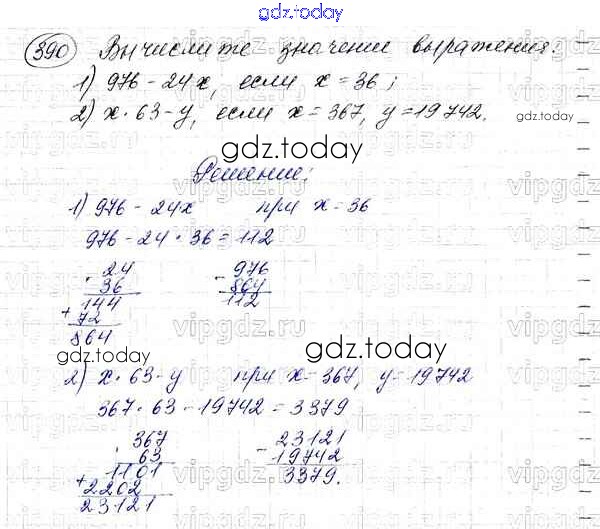 gdz.today
390 Вычислите значение выражения:
1) 976 - 24x, если x = 36;
2) x · 63 - y, если x = 367, y = 19742.
gdz.today
gdz.today
Решение:
1) 976 - 24x при x = 36
976 - 24 · 36 = 112
· 24 - 976
36 864
144 112
+ 72
864
gdz.today
gdz.today
2) x · 63 - y при x = 367, y = 19742
367 · 63 - 19742 = 3379
· 367 - 23121
63 19742
1101 3379.
+ 2202
23121
vipgdz.ru